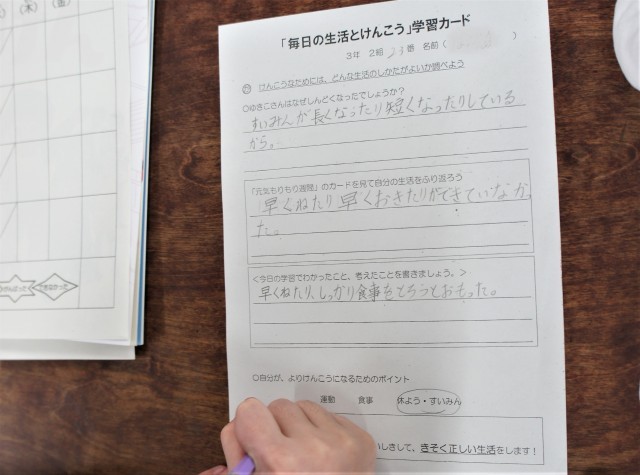 (木)
(金)
「毎日の生活とけんこう」学習カード
3年 2組 23番 名前 ( )
けんこうなためには、どんな生活のしかたがよいか調べよう
○ゆきこさんはなぜしんどくなったでしょうか?
すいみんが長くなったり短くなったりしている
から。
「元気もりもり週間」のカードを見て自分の生活をふり返ろう
早くねたり早くおきたりができていなかっ
た。
<今日の学習でわかったこと、考えたことを書きましょう。>
早くねたり、しっかり食事をとろうとおもった。
○自分が、よりけんこうになるためのポイント
運動 食事 休よう・すいみん
いしきして、きそく正しい生活をします!
できなかった